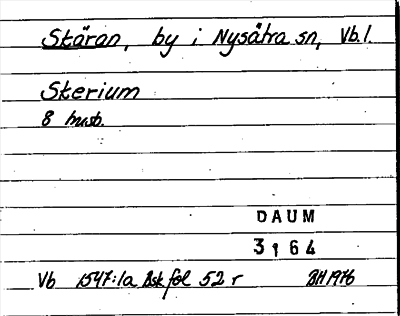 Skäran, by i Nysätra sn, Vb.l.
Skerium
8 husb.
DAUM
3164
Vb 1547:1a Bsk fol 52 r BH 1976